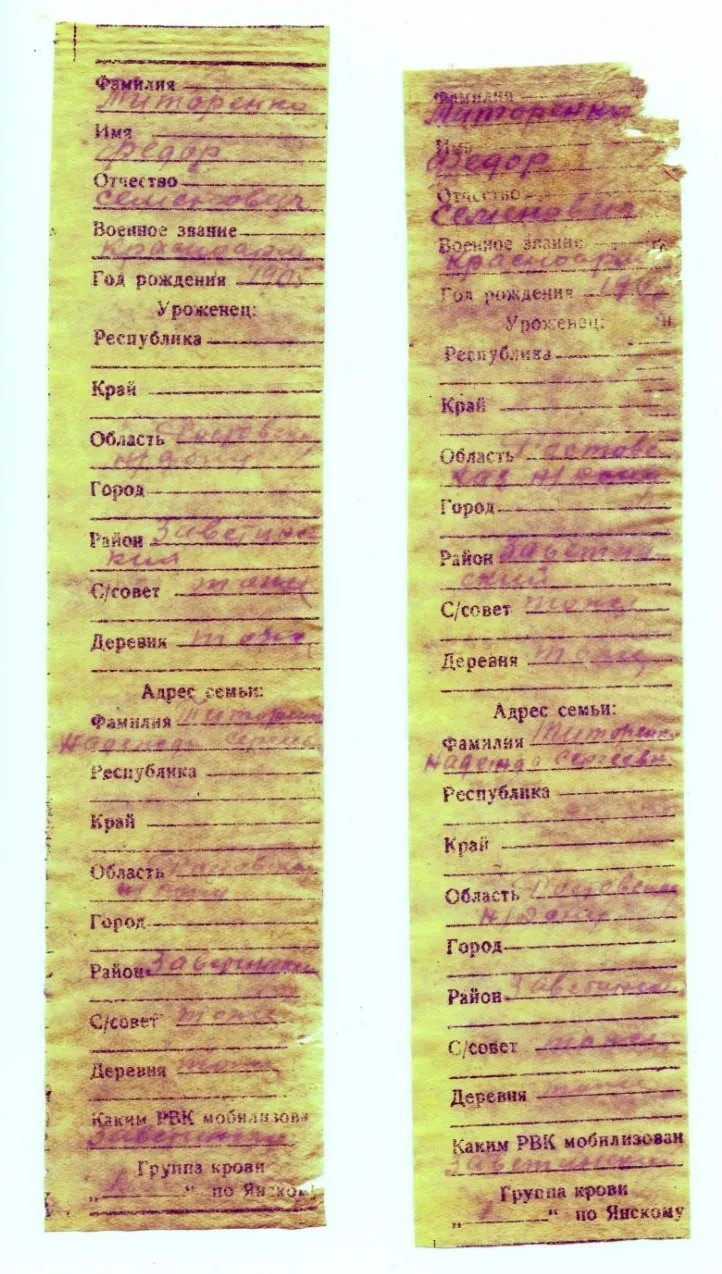 Фамилия
Титоренко
Имя
Федор
Отчество
Семенович
Военное звание
Красноарм
Год рождения 1905
Уроженец:
Республика
Край
Область Ростовска
н/дону
Город
Район Заветин
кий
С/совет тоже
Деревня тоже
Адрес семьи:
Фамилия Титорен
Надежда Сергее
Республика
Край
Область Ростовска
н/дону
Город
Район Заветински
С/совет тоже
Деревня тоже
Каким РВК мобилизова
Заветинским
Группа крови
„ “ по Янскому
Фамилия
Титоренко
Имя
Федор
Отчество
Семенович
Военное звание
Красноарм
Год рождения 190
Уроженец:
Республика
Край
Область Ростовс
кая н/дону
Город
Район Заветин
ский
С/совет тоже
Деревня тоже
Адрес семьи:
Фамилия Титоренко
Надежда Сергеевн
Республика
Край
Область Ростовска
н/Дону
Город
Район Заветинск
С/совет тоже
Деревня тоже
Каким РВК мобилизован
Заветинским
Группа крови
„ “ по Янскому